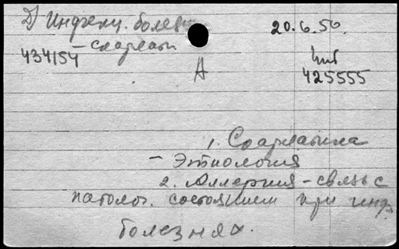 Д) Инфекц. болезн
20.6.50
– Скарлат
434154
А
Инв
425555
1. Скарлатина
– Этиология
2. Аллергия – связь с
патолог. состоянием при инф.
болезнях.